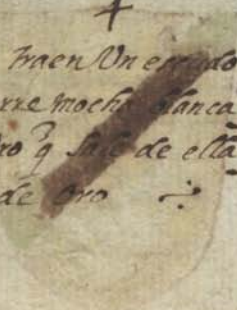 traen Un escudo
rre mocha blanca
ro q̃ sale de ella
de oro